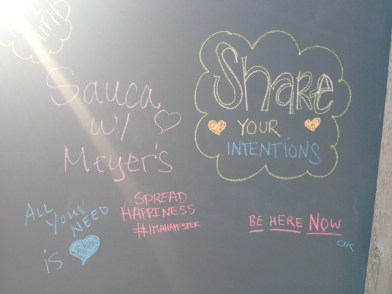 Sauca
w/
Meyer's
Share
YOUR
INTENTIONS
ALL
YOU NEED
is
SPREAD
HAPPINESS
#IMAHAPPSTER
BE HERE NOW
OK